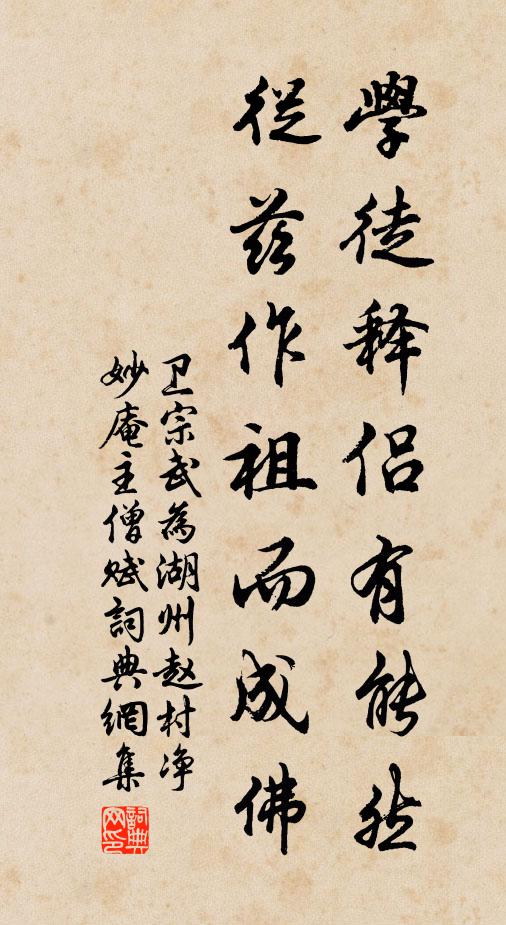 學徒释侣有能然
從茲作祖而成佛
卫宗武為湖州赵村净
妙庵主僧赋詞典網集
詞典
网印